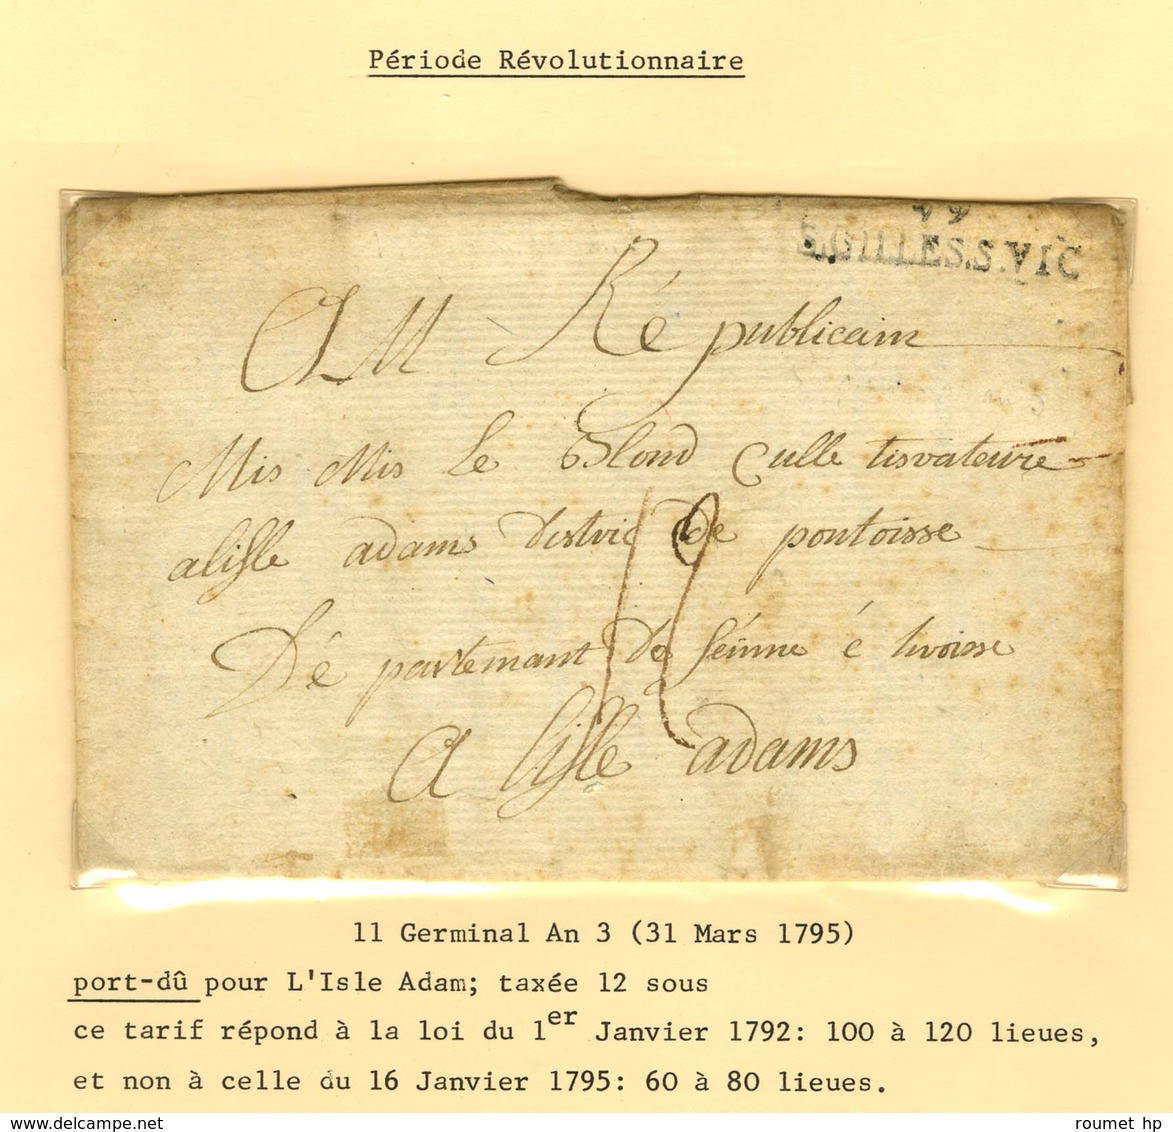 Période Révolutionnaire
79
S.GILLES.S.VIC
AM Républicain
Mis Mis Le Blond Culle tisvateure
alisle adams distric de pontoisse
12
Dé partemant de seinne é tivoisse
A lisle adams
11 Germinal An 3 (31 Mars 1795)
port-dû pour L'Isle Adam; taxée 12 sous
ce tarif répond à la loi du 1er Janvier 1792: 100 à 120 lieues,
et non à celle du 16 Janvier 1795: 60 à 80 lieues.
roumet hp